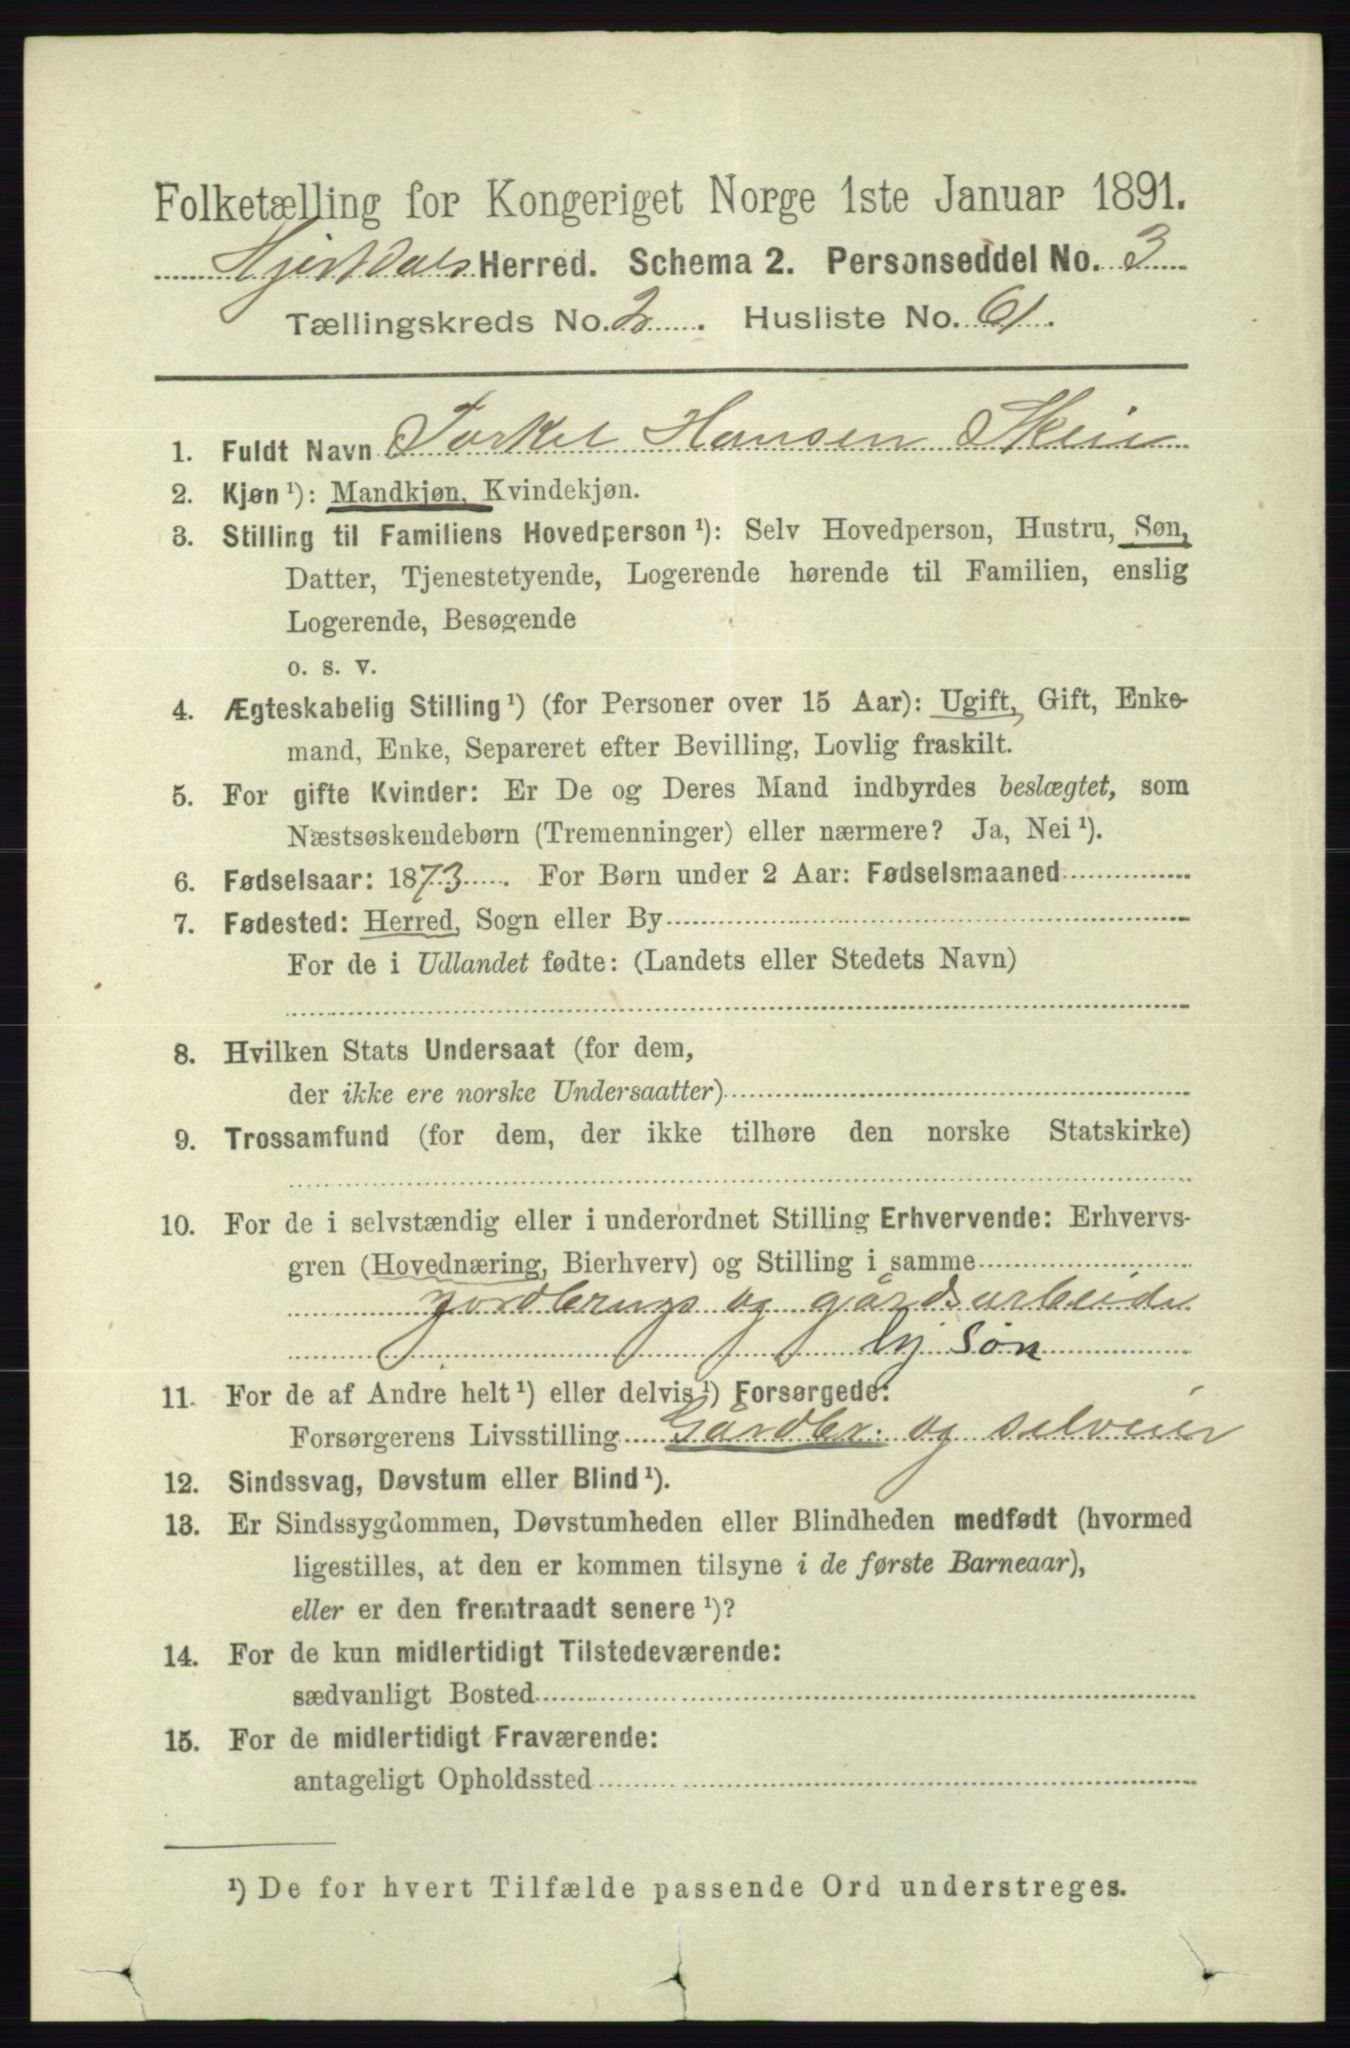 Folketælling for Kongeriget Norge 1ste Januar 1891.
Hjertdals Herred. Schema 2. Personseddel No. 3
Tællingskreds No. 2. Husliste No. 61.
1. Fuldt Navn Torkel Hansen Skeie
2. Kjøn ¹): Mandkjøn, Kvindekjøn.
3. Stilling til Familiens Hovedperson ¹): Selv Hovedperson, Hustru, Søn,
Datter, Tjenestetyende, Logerende hørende til Familien, enslig
Logerende, Besøgende
o. s. v.
4. Ægteskabelig Stilling ¹) (for Personer over 15 Aar): Ugift, Gift, Enke-
mand, Enke, Separeret efter Bevilling, Lovlig fraskilt.
5. For gifte Kvinder: Er De og Deres Mand indbyrdes beslægtet, som
Næstsøskendebørn (Tremenninger) eller nærmere? Ja, Nei ¹).
6. Fødselsaar: 1873. For Børn under 2 Aar: Fødselsmaaned
7. Fødested: Herred, Sogn eller By
For de i Udlandet fødte: (Landets eller Stedets Navn)
8. Hvilken Stats Undersaat (for dem,
der ikke ere norske Undersaatter)
9. Trossamfund (for dem, der ikke tilhøre den norske Statskirke)
10. For de i selvstændig eller i underordnet Stilling Erhvervende: Erhvervs-
gren (Hovednæring, Bierhverv) og Stilling i samme
jordbrugs og gårdsarbeide
Søn
11. For de af Andre helt ¹) eller delvis ¹) Forsørgede:
Forsørgerens Livsstilling Gårdbr. og selveier
12. Sindssvag, Døvstum eller Blind ¹).
13. Er Sindssygdommen, Døvstumheden eller Blindheden medfødt (hvormed
ligestilles, at den er kommen tilsyne i de første Barneaar),
eller er den fremtraadt senere ¹)?
14. For de kun midlertidigt Tilstedeværende:
sædvanligt Bosted
15. For de midlertidigt Fraværende:
antageligt Opholdssted
¹) De for hvert Tilfælde passende Ord understreges.